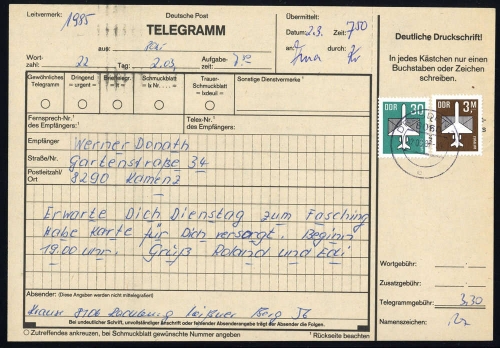 Leitvermerk: 1985
Deutsche Post
TELEGRAMM
aus:
Wortzahl: 22 Tag: 2.03. Aufgabezeit:
Übermittelt:
Datum: 2.3. Zeit: 750
an: durch:
Deutliche Druckschrift!
In jedes Kästchen nur einen
Buchstaben oder Zeichen
schreiben.
Gewöhnliches Telegramm
Dringend = urgent =
Brieftelegr.
Schmuckblatt = lx Nr. .... =
Trauer-Schmuckblatt = lxdeuil =
Sonstige Dienstvermerke
DDR 30
DDR 3M
Fernsprech-Nr. des Empfängers:
Telex-Nr. des Empfängers:
Empfänger Werner Donath
Straße/Nr. Gartenstraße 34
Postleitzahl/Ort 8290 Kamenz
Erwarte Dich Dienstag zum Fasching
Habe Karte für Dich versorgt. Beginn
19.00 uhr. Gruß Roland und Edi
Wortgebühr:
Zusatzgebühr:
Telegrammgebühr: 3,30
Namenszeichen:
Absender: (Diese Angaben werden nicht mittelegrafiert)
8106 Radeburg Meißner Berg
Bei undeutlicher Schrift, unvollständiger Anschrift oder fehlender Absenderangabe trägt der Absender die Folgen.
○ Zutreffendes ankreuzen, bei Schmuckblatt gewünschte Nummer angeben. * Rückseite beachten